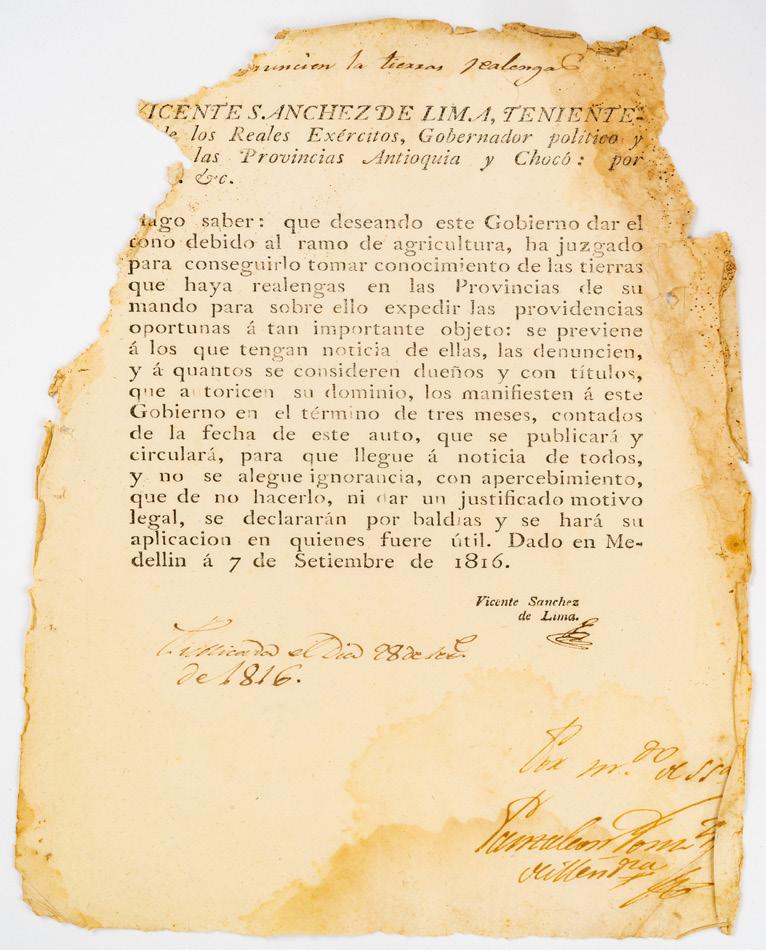 la tierras realengas
VICENTE SANCHEZ DE LIMA, TENIENTE-
de los Reales Exércitos, Gobernador político y
las Provincias Antioquia y Chocó: por
&c.
Hago saber: que deseando este Gobierno dar el
tono debido al ramo de agricultura, ha juzgado
para conseguirlo tomar conocimiento de las tierras
que haya realengas en las Provincias de su
mando para sobre ello expedir las providencias
oportunas á tan importante objeto: se previene
á los que tengan noticia de ellas, las denuncien,
y á quantos se consideren dueños y con títulos,
que autoricen su dominio, los manifiesten á este
Gobierno en el término de tres meses, contados
de la fecha de este auto, que se publicará y
circulará, para que llegue á noticia de todos,
y no se alegue ignorancia, con apercebimiento,
que de no hacerlo, ni dar un justificado motivo
legal, se declararán por baldías y se hará su
aplicacion en quienes fuere útil. Dado en Me-
dellin á 7 de Setiembre de 1816.
Vicente Sanchez
de Lima.
el Dia 28 de
de 1816.
Por
Pantaleon